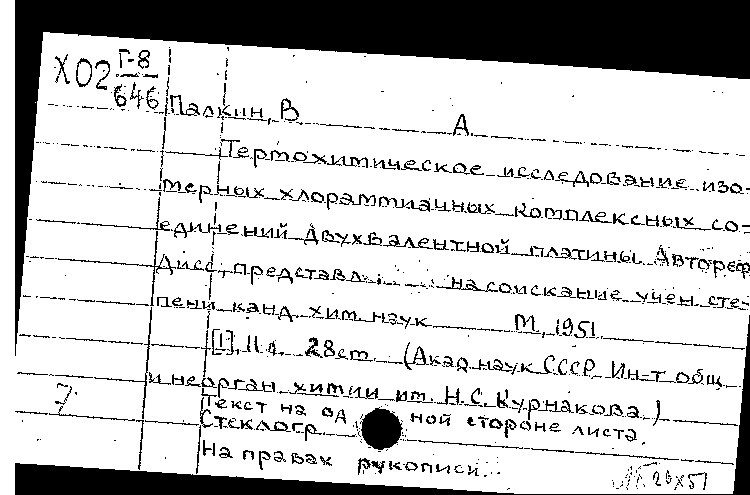 Х02 Г-8
646
Палкин, В. А.
Термохимическое исследование изо-
мерных хлораммиачных комплексных со-
единений двухвалентной платины. Автореф.
дисс., представл. на соискание учен. сте-
пени канд. хим. наук М, 1951.
[1], 11 л. 28 см. (Акад. наук СССР. Ин-т общ.
и неорган. химии им. Н.С. Курнакова.)
7 Текст на одной стороне листа.
Стеклогр.
На правах рукописи.
26 X 51